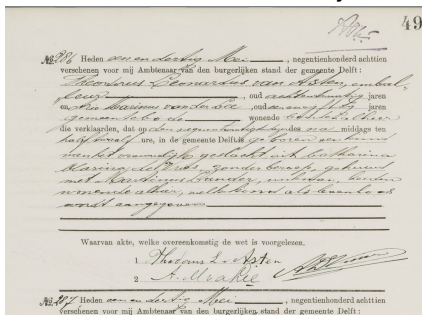 49
No 286 Heden een en dertig Mei, negentienhonderd achttien
verschenen voor mij Ambtenaar van den burgerlijken stand der gemeente Delft:
Theodorus Leonardus van Asten, embal-
leur, oud jaren
en, Arie Marinus van der Lee, oud jaren
gemeentebode wonende beiden alhier
die verklaarden, dat op den negenentwintigsten dezer des na middags ten
half twaalf ure, in de gemeente Delft is geboren een kind
van het vrouwelijk geslacht uit Catharina
Clasina de Bruin, zonder beroep, gehuwd
met Martinus, beiden
wonende alhier, welk kind als levenloos
wordt aangegeven
Waarvan akte, welke overeenkomstig de wet is voorgelezen.
1 Theodorus L. v Asten
2
No 287 Heden een en dertig Mei, negentienhonderd achttien
verschenen voor mij Ambtenaar van den burgerlijken stand der gemeente Delft: